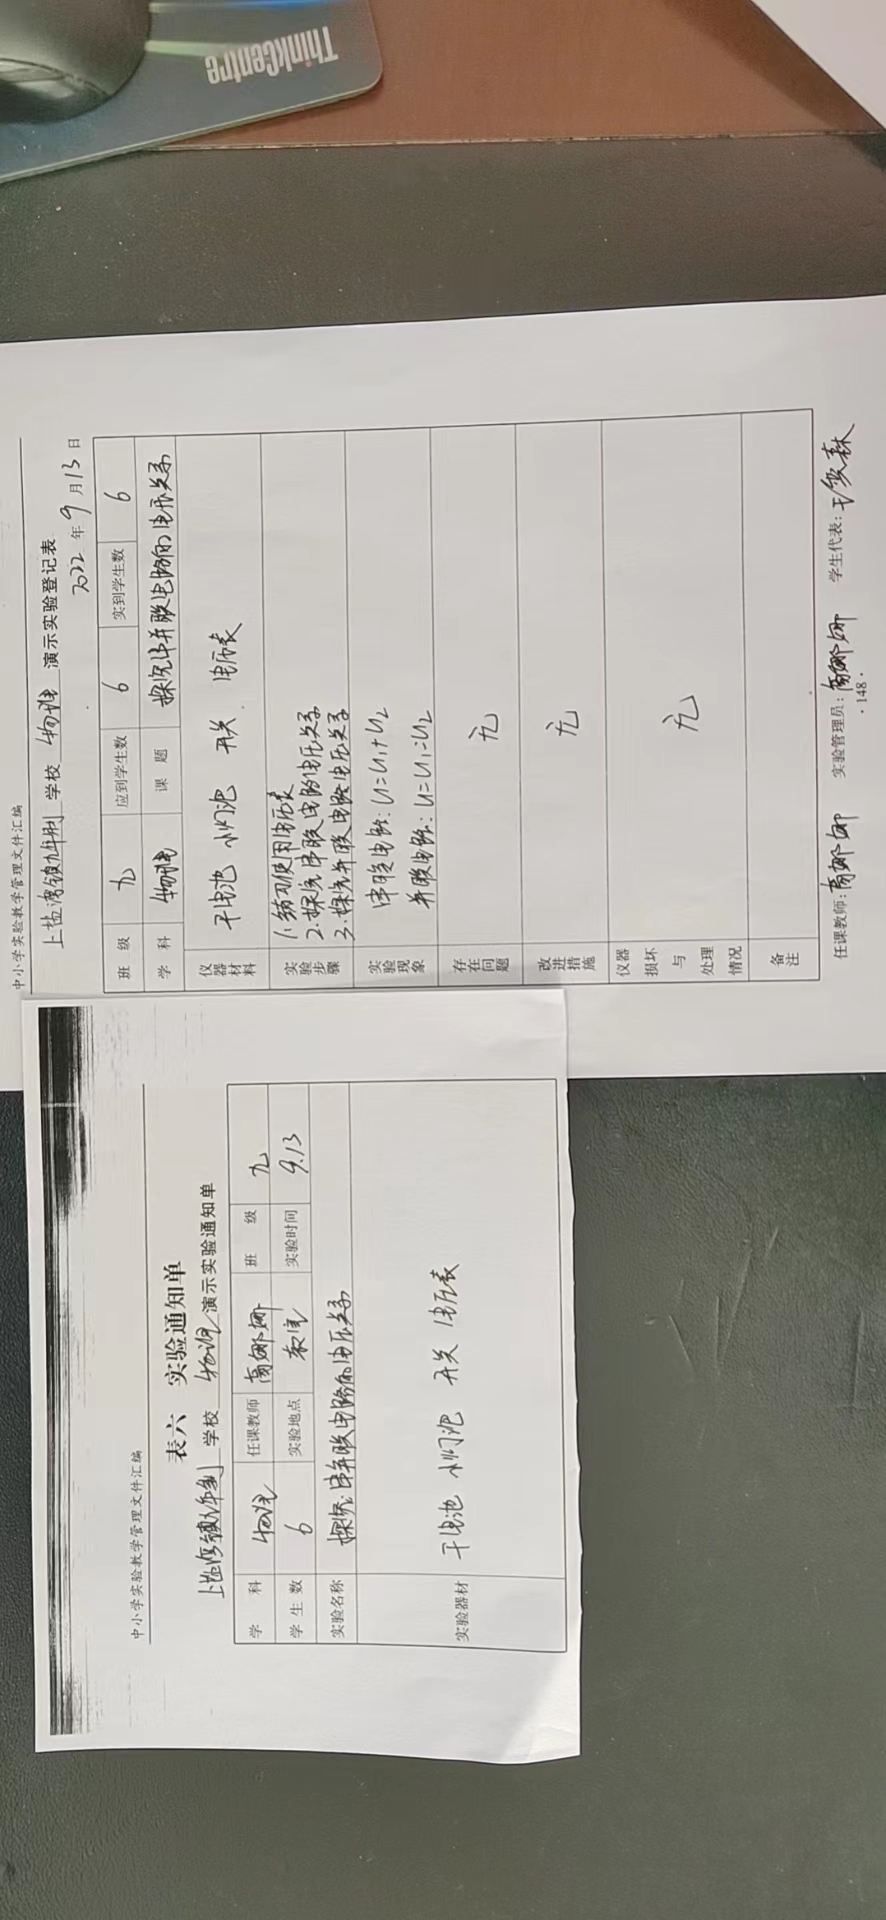 ThinkCentre
中小学实验教学管理文件汇编
表六 实验通知单
学校 物理 演示实验通知单
学 科 物理 任课教师 高娜娜 班 级 九
学 生 数 6 实验地点 实验时间 9.13
实验名称 探究:串并联电路的电压关系
实验器材 干电池 小灯泡 开关 电压表
中小学实验教学管理文件汇编
学校 物理 演示实验登记表
2022 年 9 月 13 日
班 级 九 应到学生数 6 实到学生数 6
学 科 物理 课 题 探究串并联电路的电压关系
仪器材料 干电池 小灯泡 开关 电压表
实验步骤 1.练习使用电压表
2.探究串联电路电压关系
3.探究并联电路电压关系
实验现象 串联电路:U=U1+U2
并联电路:U=U1=U2
存在问题 无
改进措施 无
仪器损坏与处理情况 无
备注
任课教师:高娜娜 实验管理员:高娜娜 学生代表:
·148·